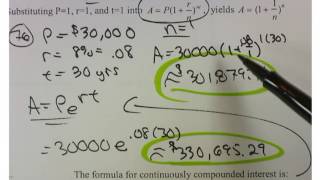 Substituting P=1, r=1, and t=1 into A = P(1+r/n)^nt, yields A = (1+1/n)^n
n=1
76 P = $30,000
r = 8% = .08
t = 30 yrs
A = 30000(1+.08/1)^1(30)
≈ $301,879.
A = Pe^rt
= 30000 e^.08(30)
≈ $330,695.29
The formula for continuously compounded interest is: